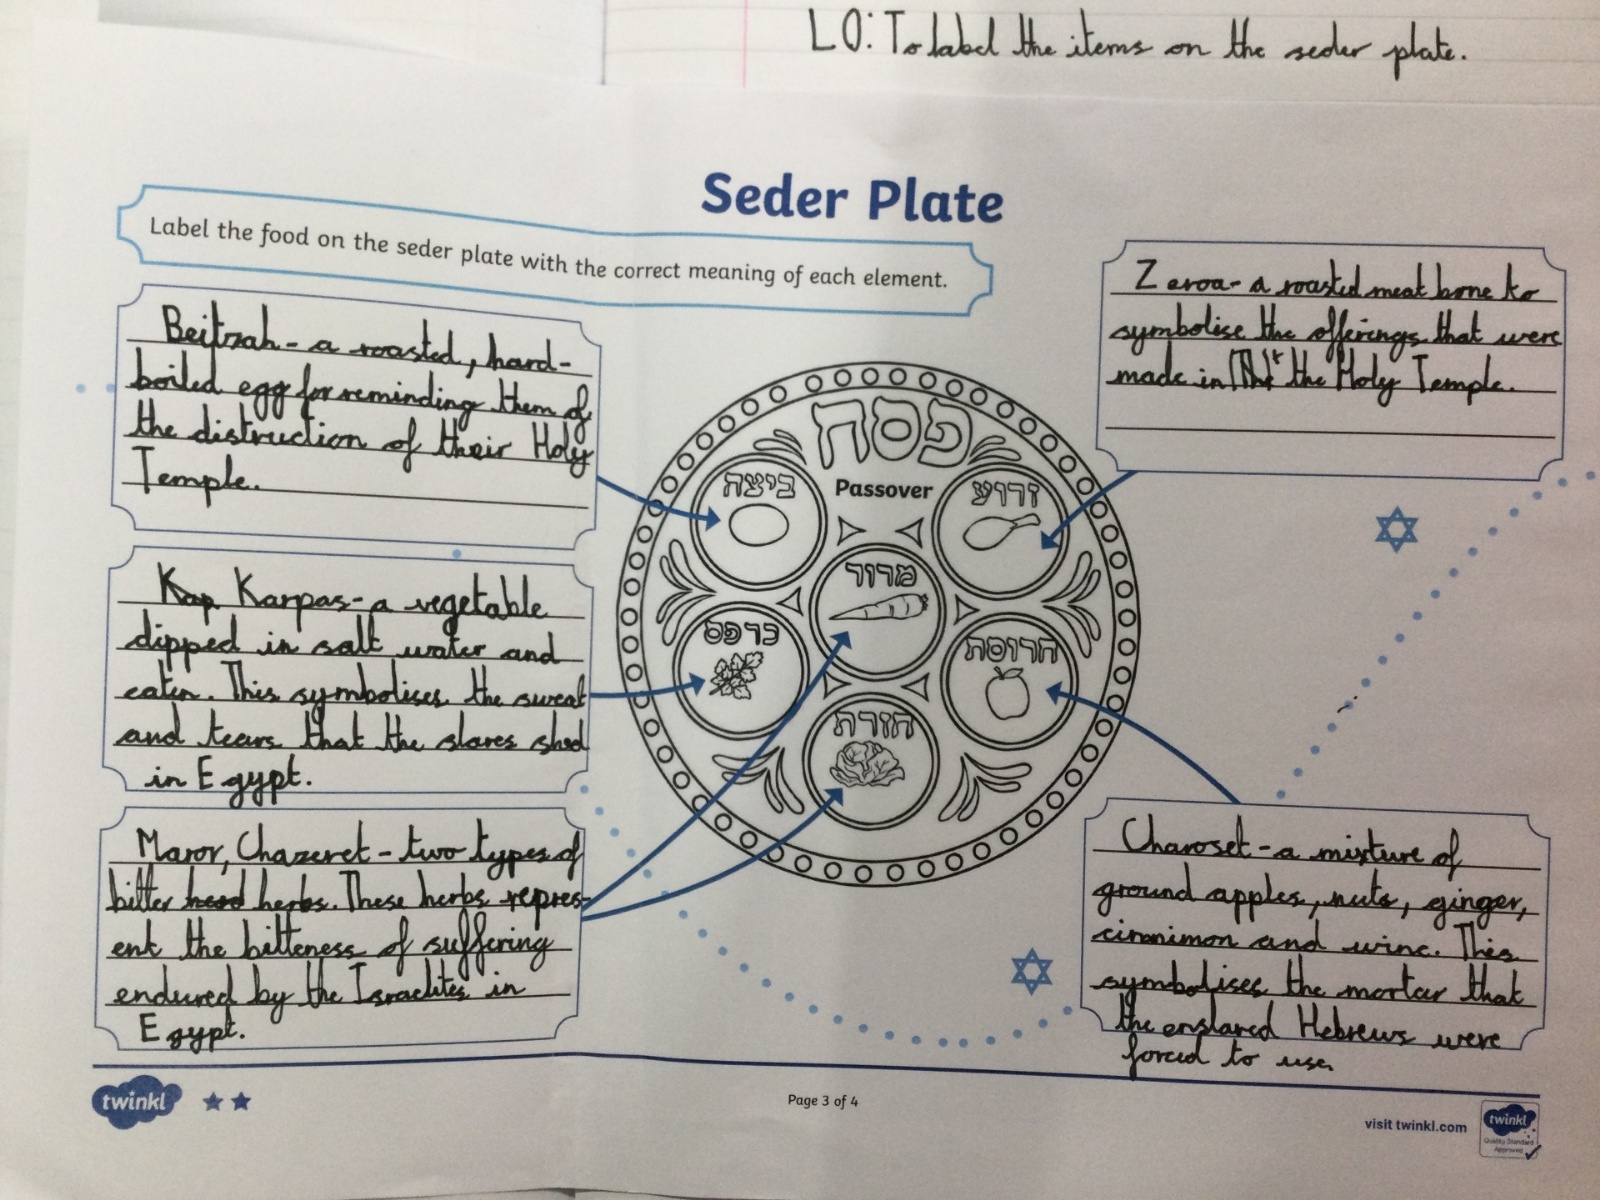 LO: To label the items on the seder plate.
Seder Plate
Label the food on the seder plate with the correct meaning of each element.
Beitzah - a roasted, hard-
boiled egg for reminding them of
the distruction of their Holy
Temple.
Kap Karpas - a vegetable
dipped in salt water and
eaten. This symbolises the sweat
and tears that the slaves shed
in Egypt.
Maror, Chazeret - two types of
bitter herbs. These herbs repres-
ent the bitteness of suffering
endured by the Israelites in
Egypt.
Zeroa - a roasted meat bone to
symbolise the offerings that were
made in the Holy Temple.
Charoset - a mixture of
ground apples, nuts, ginger,
cinnimon and wine. This
symbolises the mortar that
the enslaved Hebrews were
forced to use.
פסח
Passover
ביצה
זרוע
מרור
כרפס
חרוסת
חזרת
twinkl
Page 3 of 4
visit twinkl.com
twinkl
Quality Standard
Approved